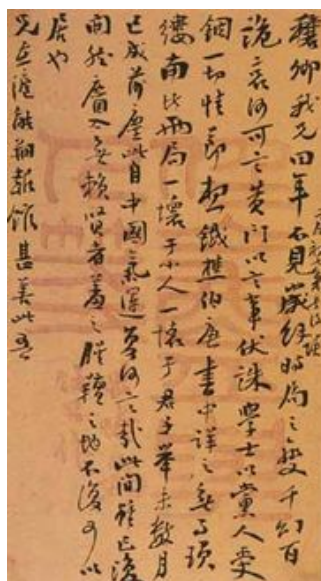 穰卿我兄四年不見歲經時局之變千幻百
詭哀何可言黃門以言事伏誅學士以黨人受
錮一切情節想鐵樵伯唐書中詳之無事瑣
縷南北兩局一壞于小人一壞于君子舉未數月
已成前塵此自中國氣運夫何言哉此間雖已復
開然麕入無賴賢者羞之腥羶之地不復可以
居也
兄在滬能剏報館甚善此吾